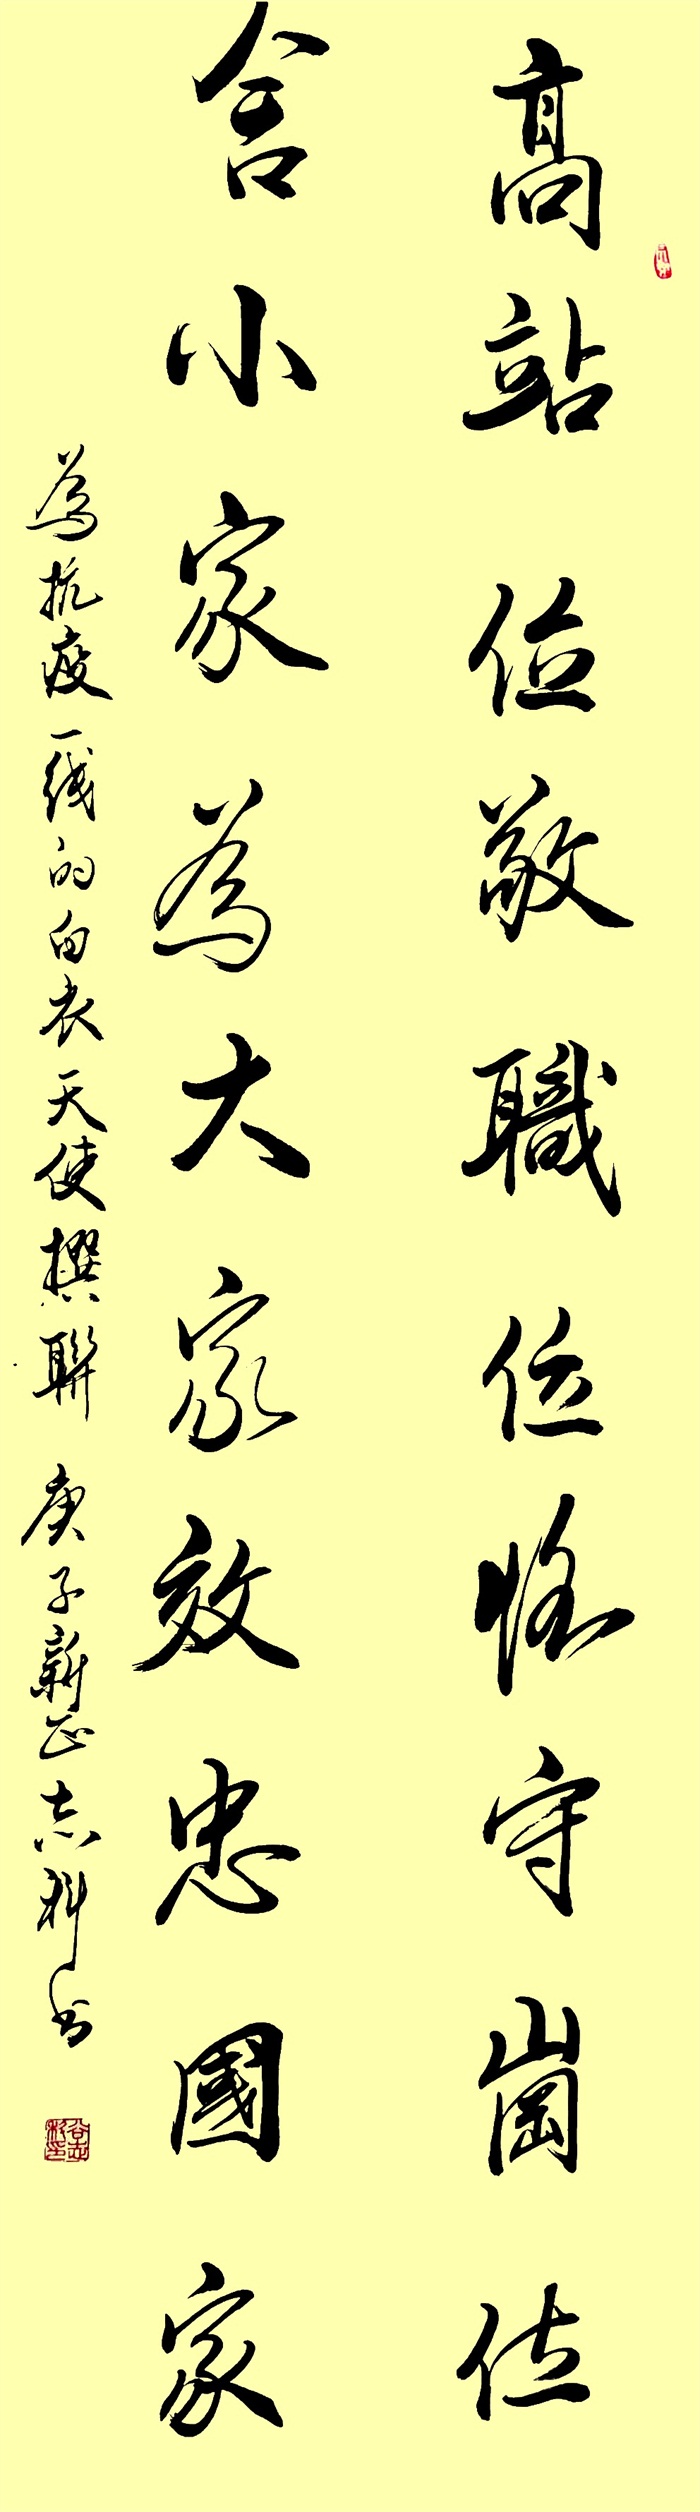 高站位敬職位恪守崗位
舍小家為大家效忠國家
為抗疫一线的白衣天使撰聯 庚子新正志科书
谷志科印